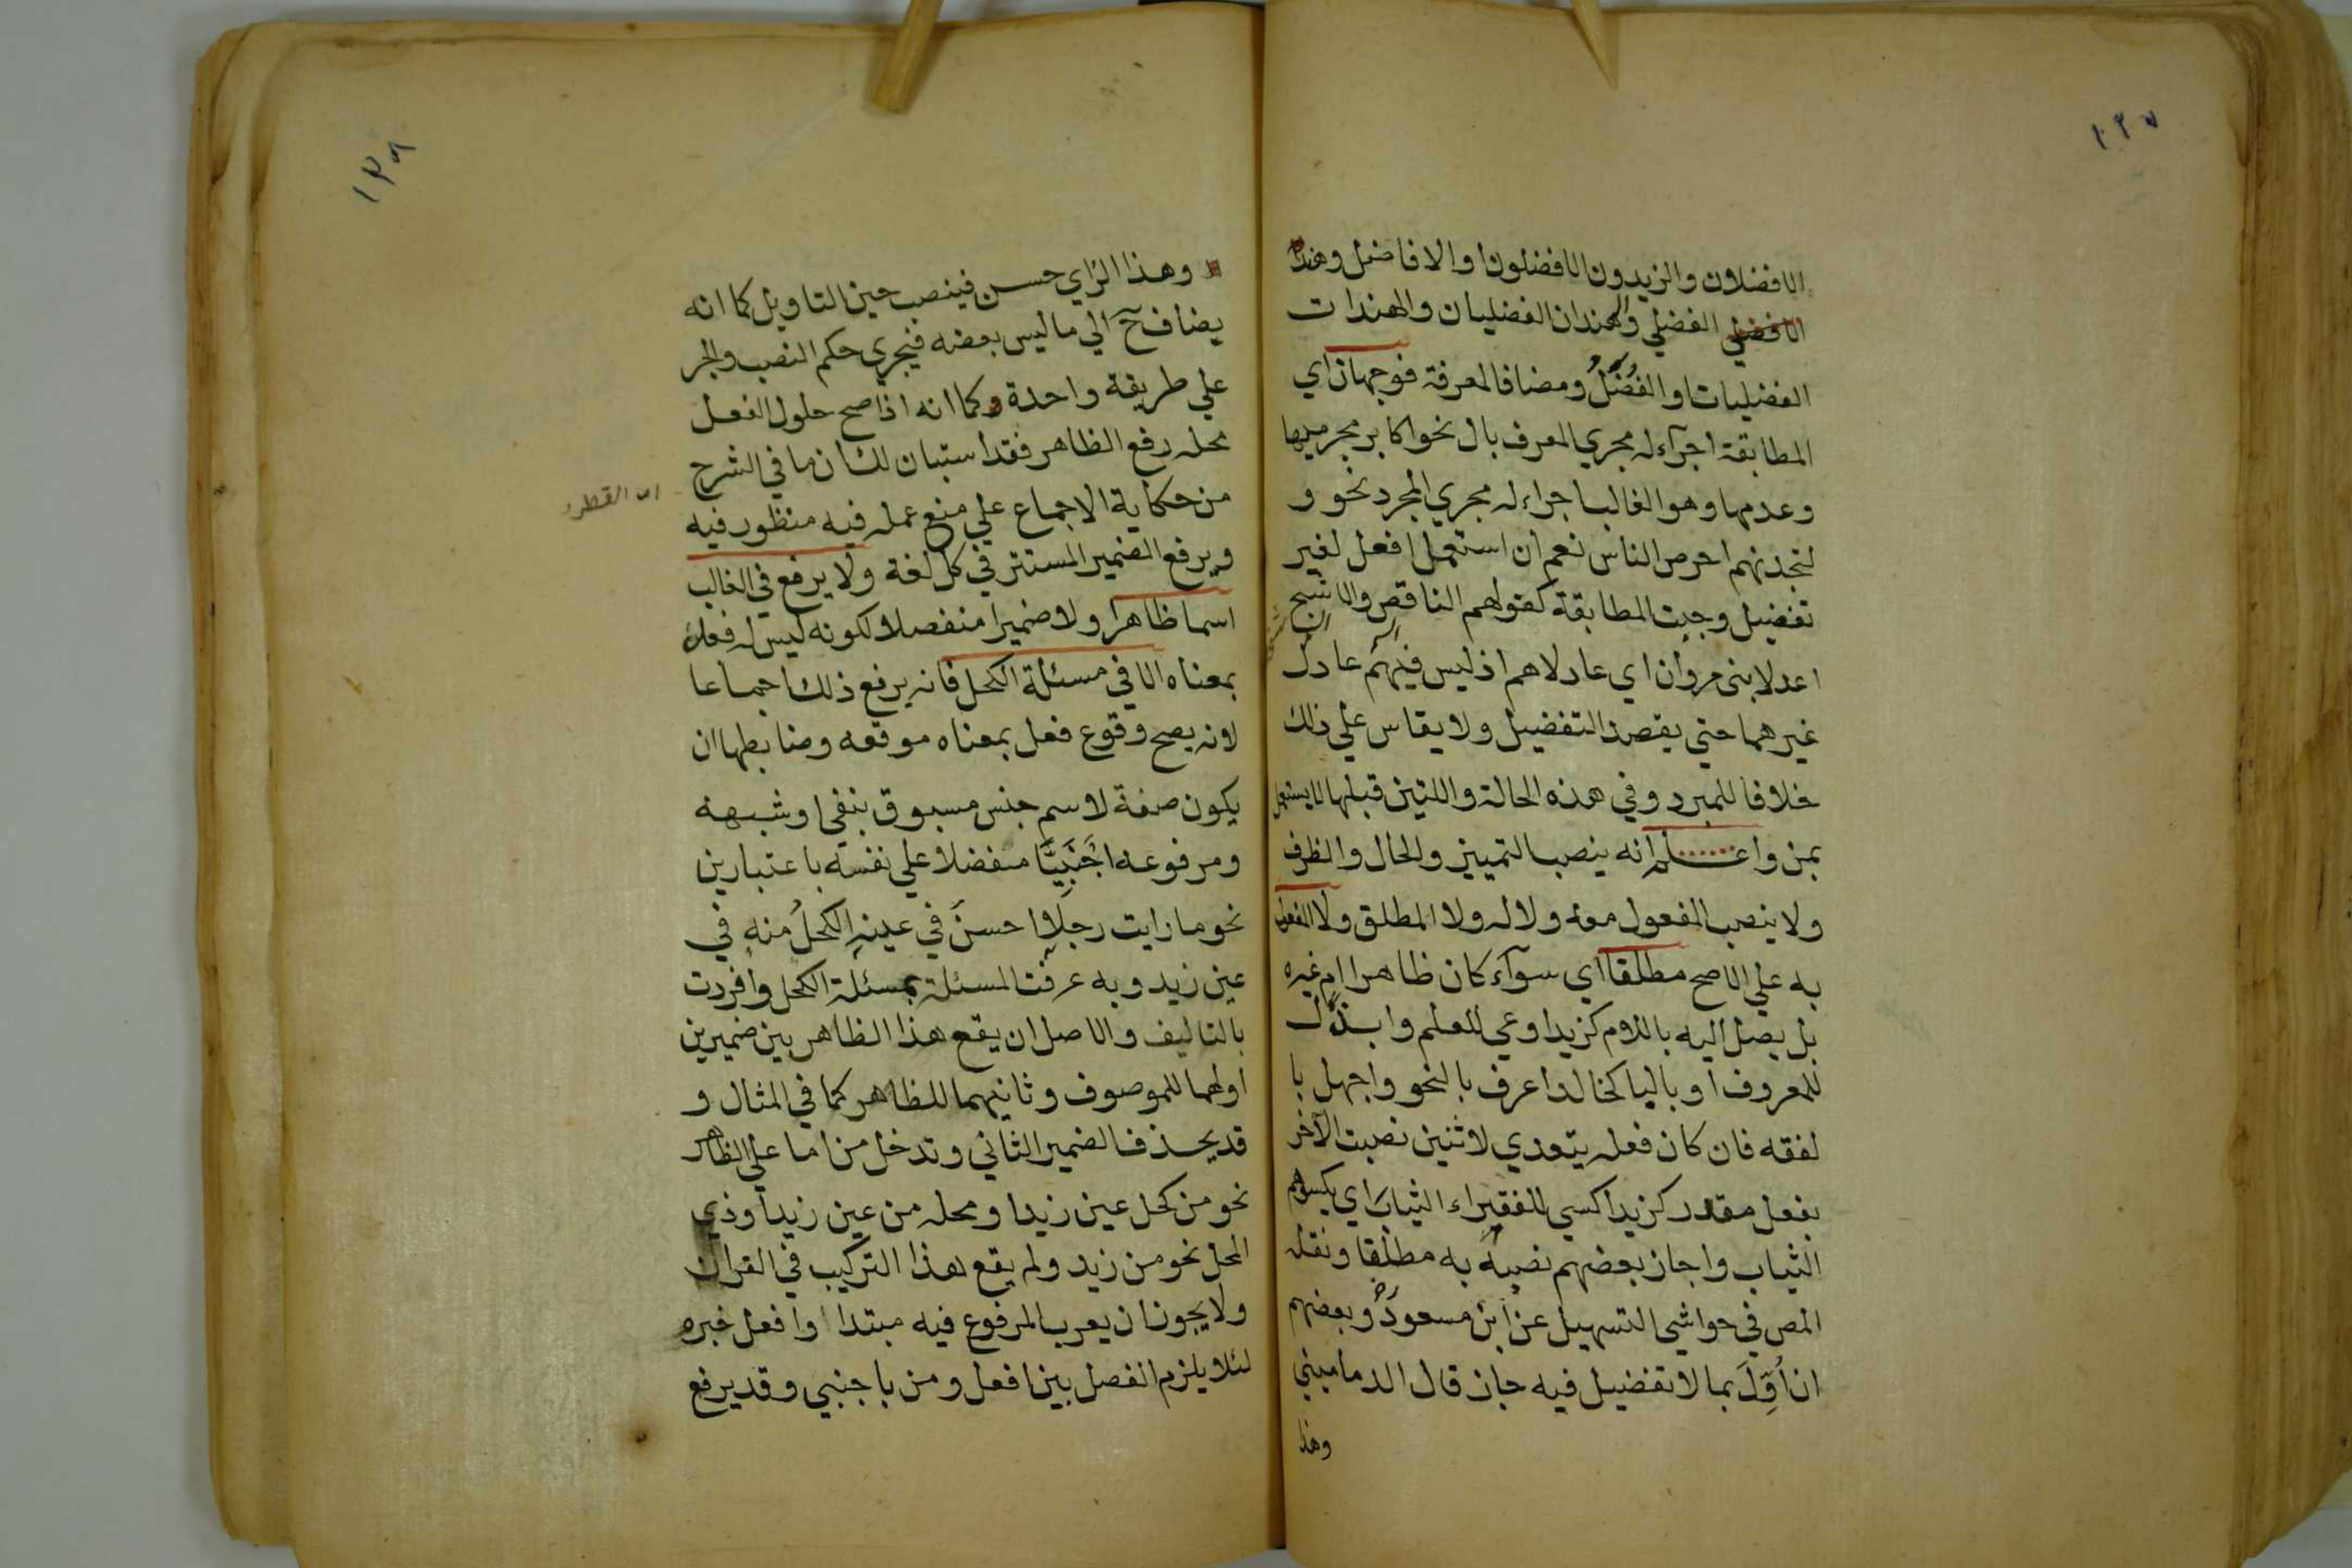 ١٣٧
الافضلان والزيدون الافضلون او الافاضل وهند
الافضلي الفضلي والهندان الفضليان والهندات
الفضليات او الفُضَلُ ومضافا لمعرفة فوجهان اي
المطابقة اجرآء له مجري المعرف بال نحو اكابر مجرميها
وعدمها وهو الغالب اجراء له مجري المجرد نحو و
لتجدنهم احرص الناس نعم ان استعمل افعل لغير
تفضيل وجبت المطابقة كقولهم الناقص والاشج
اعدلا بني مروان اي عادلاهم اذ ليس فيهم عادل
غيرهما حتي يقصد التفضيل ولا يقاس علي ذلك
خلافا للمبرد وفي هذه الحالة واللتين قبلها لا يستعمل
بمن واعلم انه ينصب التمييز والحال والظرف
ولا ينصب المفعول معه ولا له ولا المطلق ولا المفعول
به علي الاصح مطلقا اي سوآء كان ظاهرا ام غيره
بل يصل اليه باللام كزيد اوعي للعلم وابذل
للمعروف او بالبا كخالد اعرف بالنحو واجهل با
لفقه فان كان فعله يتعدي لاثنين نصبت الآخر
بفعل مقدر كزيد اكسي للفقراء الثياب اي يكسوهم
الثياب واجاز بعضهم نصبه به مطلقا ونقله
المص في حواشي التسهيل عن ابن مسعود وبعضهم
ان أوّلَ بما لا تفضيل فيه جاز قال الدماميني
وهذا
١٣٨
وهذا الرأي حسن فينصب حين التاويل كما انه
يضاف ح الي ما ليس بعضه فيجري حكم النصب والجر
علي طريقة واحدة وكما انه اذا صح حلول الفعل
محله رفع الظاهر فقد استبان لك ان ما في الشرح
من حكاية الاجماع علي منع عمله فيه منظور فيه
ويرفع الضمير المستتر في كل لغة ولا يرفع في الغالب
اسما ظاهرا ولا ضميرا منفصلا لكونه ليس له فعل
بمعناه الا في مسئلة الكحل فانه يرفع ذلك اجماعا
لانه يصح وقوع فعل بمعناه موقعه وضابطها ان
يكون صفة لاسم جنس مسبوق بنفي او شبهه
ومرفوعه اجْنَبِيًّا مفضلا علي نفسه باعتبارين
نحو ما رايت رجلا احسنَ في عينِهِ الكحلُ منه في
عين زيد وبه عرفت المسئلة بمسئلة الكحل وافردت
بالتاليف والاصل ان يقع هذا الظاهر بين ضميرين
اولهما للموصوف وثانيهما للظاهر كما في المثال و
قد يحذف الضمير الثاني وتدخل من اما علي الظاهر
نحو من كحل عين زيد او محله من عين زيد او ذي
المحل نحو من زيد ولم يقع هذا التركيب في القرآن
ولا يجوز ان يعرب المرفوع فيه مبتدا وافعل خبره
لئلا يلزم الفصل بين افعل ومن باجنبي وقد يرفع